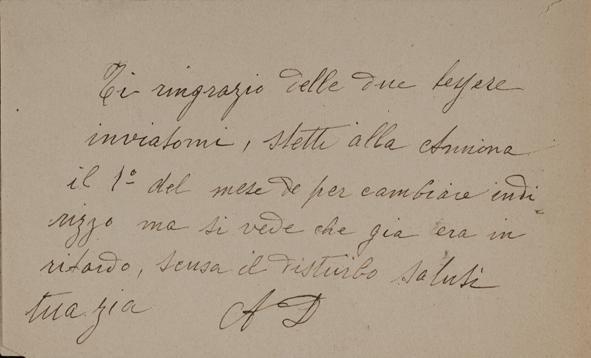 Ti ringrazio delle due tessere
inviatomi, stetti alla Annona
il 1° del mese de per cambiare indi-
rizzo ma si vede che gia era in
ritardo, scusa il disturbo saluti
tua zia A D